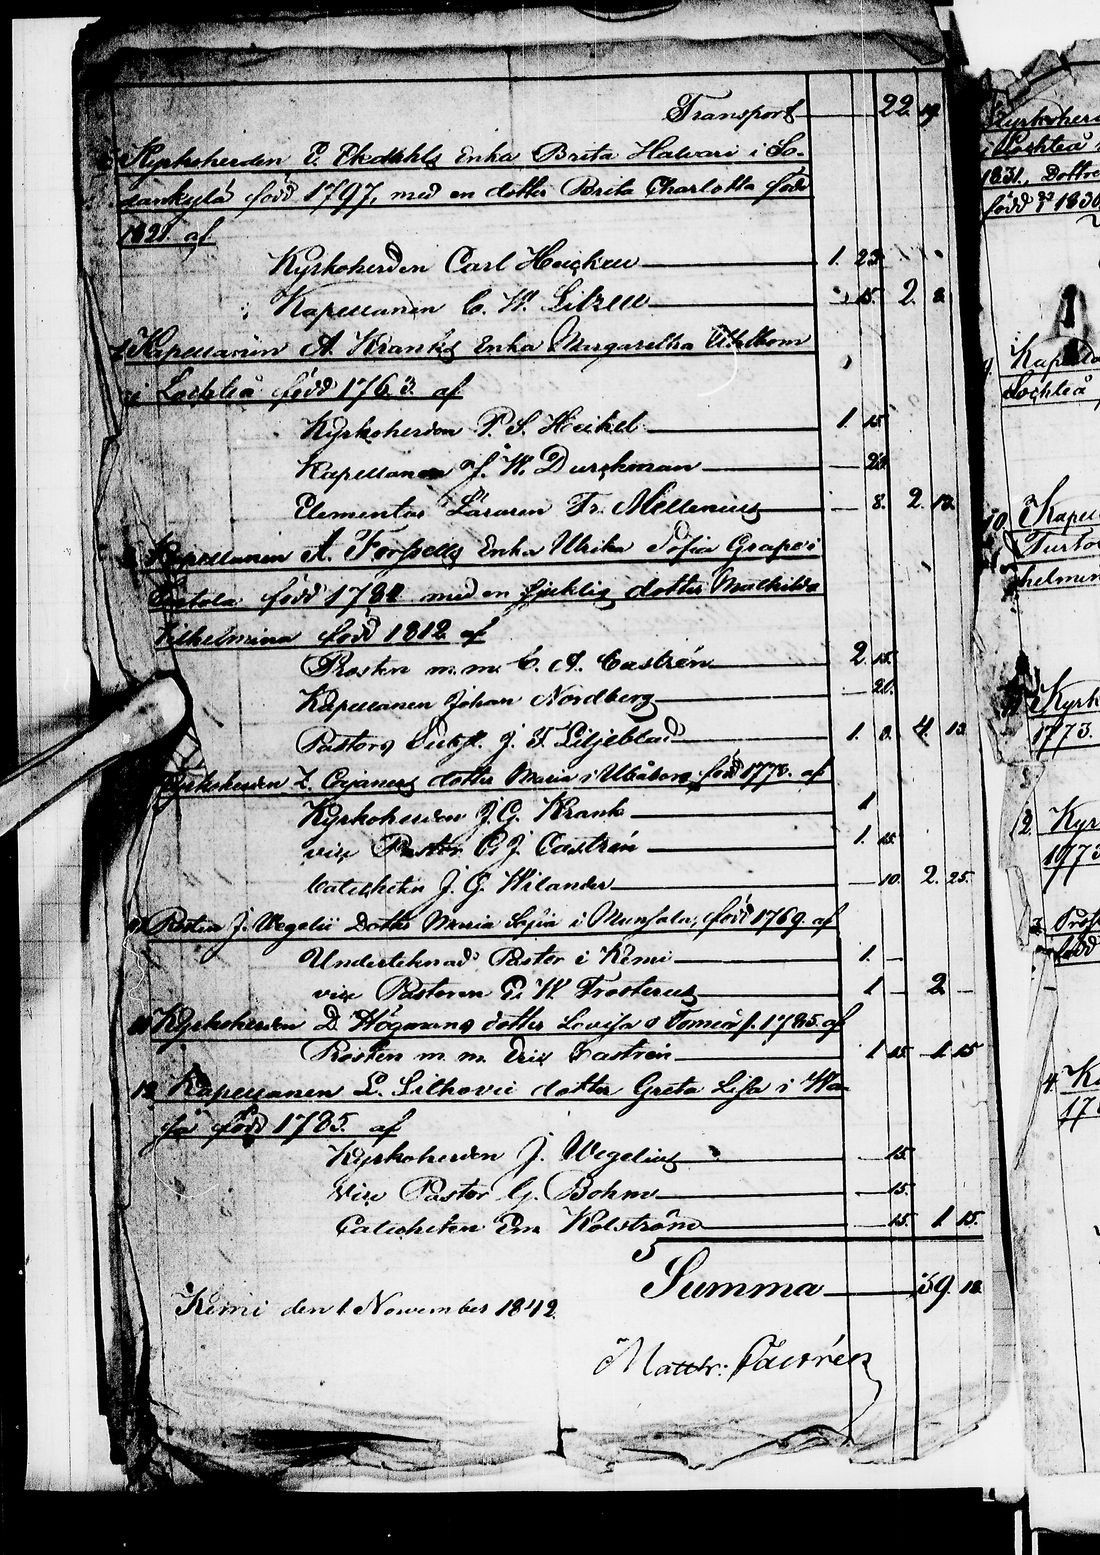 Transport 22. 19.
Kyrkoherden E. Ekdahls Enka Brita Halvari i So-
dankylä född 1797, med en dotter Brita Charlotta född
1821. af
Kyrkoherden Carl Heickell 1. 23.
Kapellanen C. W. Litzell 15. 2. 8.
Kapellanen A. Kranks Enka Margaretha Uhlbom
i Lochteå född 1763. af
Kyrkoherden P. S. Heikel 1. 15.
Kapellanen J. W. Durchman
Elementar Läraren Fr. Mellenius 8. 2. 12.
Kapellanen A. Forssells Enka Ulrika Sofia Grape i
född 1782 med en sjuklig dotter Mathilda
Vilhelmina född 1812. af
Prosten m.m. C. A. Castrén 2. 15.
Kapellanen Johan Nordberg 20.
Pastors Subst. J. F. Liljeblad 1. 8. 4. 13.
Kyrkoherden Z. Cajanus dotter Maria i Uleåborg född 1778. af
Kyrkoherden J. G. Krank 1
vice Pastor C. J. Castrén 1. 15.
Catecheten J. G. Wilander 10. 2. 25.
Prosten J. Wegelii Dotter Maria Sofia i Munsala, född 1769. af
Undertecknad Pastor i Kemi 1. —
vice Pastoren E. W. Frosterus 1 — 2 —
Kyrkoherden D. Högmans dotter Lovisa i Torneå f. 1785. af
Prosten m. m. Eric Castrén 1 15 1 15
12. Kapellanen L. Lithovii dotter Greta Lisa i Wa-
sa född 1785. af
Kyrkoherden J. Wegelius 15.
Vice Pastor G. Bohm 15.
Catecheten Em. Kolström 15. 1 15.
Summa 39. 18.
Kemi den 1 November 1842.
Matth: Castrén
Kyrkoherd
i Lochteå
1831, Dottre
född 1830
9. Kapella
Lochteå
10. Kapell
Turto
helmin
Kyrk
1773.
2. Kyr
1773
Pros
född
4. Ka
17